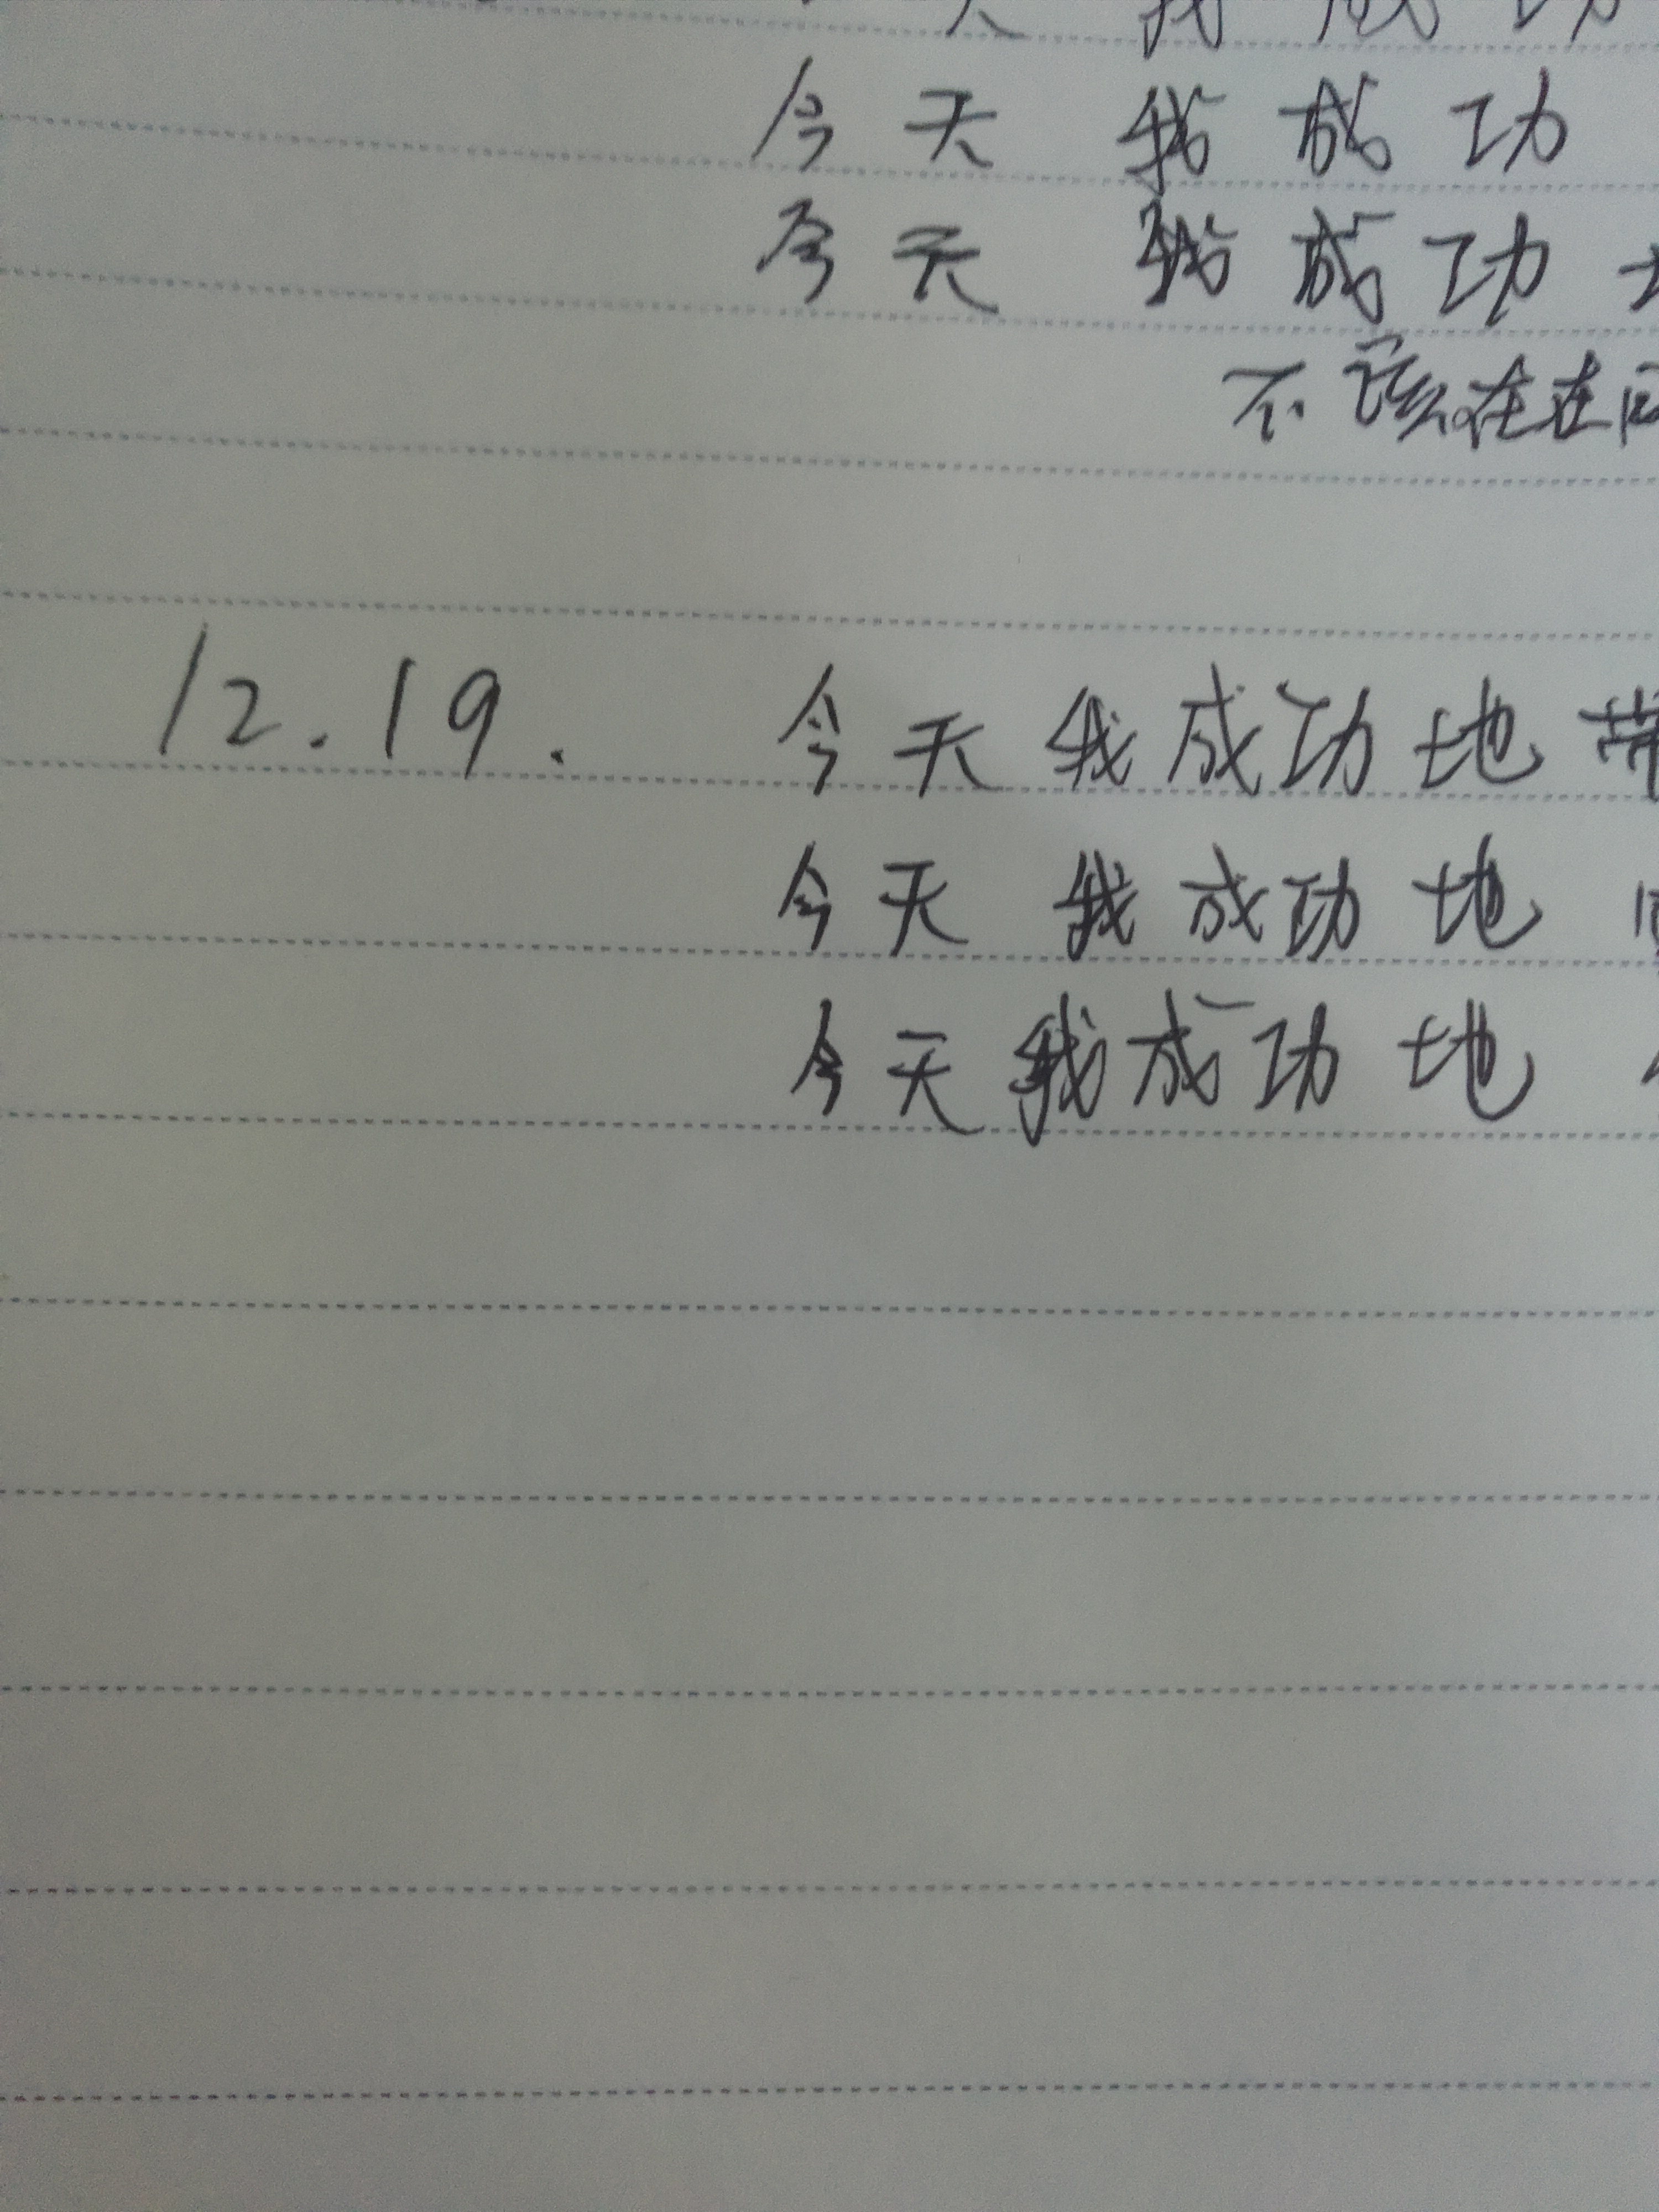 天 我 成 功
今 天 我 成 功
今 天 我 成 功
不 该 在 在
12.19. 今 天 我 成 功 地 带
今 天 我 成 功 地
今 天 我 成 功 地